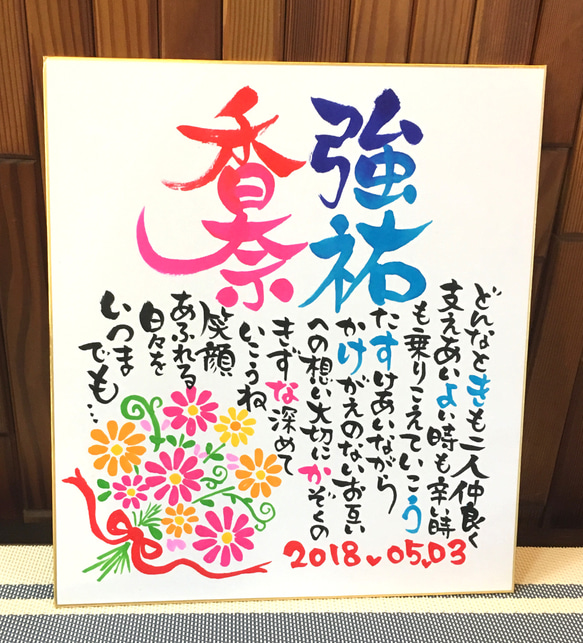 強祐
香奈
どんなときも二人仲良く
支えあいよい時も辛い時
も乗りこえていこう
たすけあいながら
かけがえのないお互い
への想い大切にかぞくの
きずな深めて
いこうね
笑顔
あふれる
日々を
いつま
でも…
2018.05.03